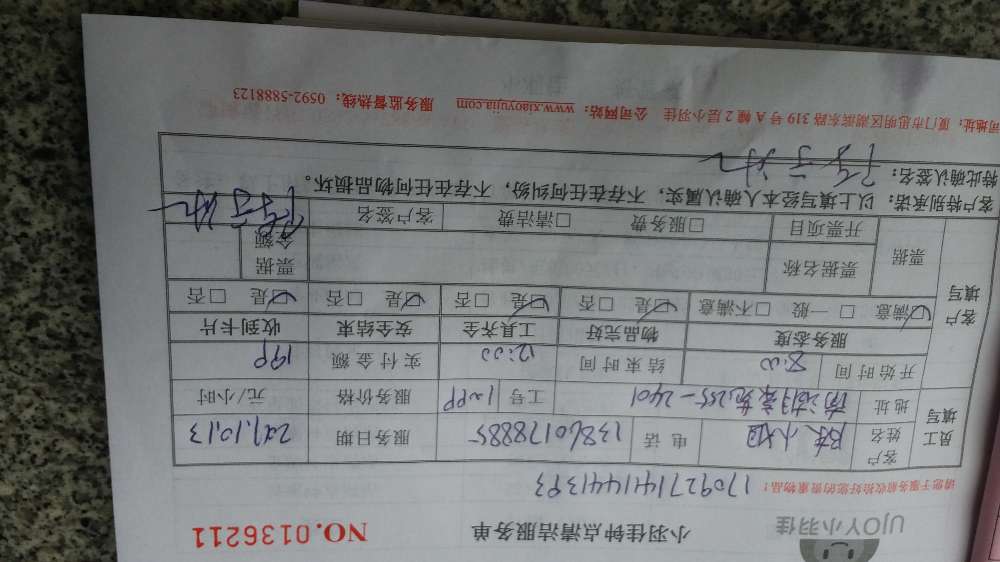 UJOY小羽佳
小羽佳钟点清洁服务单
NO.0136211
请您于服务前收拾好您的贵重物品!
170927141441393
员工填写
客户姓名 陈小姐 电话 13860178885 服务日期
地址 工号 服务价格 元/小时
开始时间 8:00 结束时间 12:00 实付金额
客户填写
服务态度 物品完好 工具齐全 安全结束 收到卡片
☑满意 □一般 □不满意 ☑是 □否 ☑是 □否 ☑是 □否 ☑是 □否
票据 票据名称 票据金额
开票项目 □服务费 □清洁费 客户签名
客户特别承诺:以上填写经本人确认属实,不存在任何纠纷,不存在任何物品损坏。
特此确认签名:
司地址:厦门市思明区湖滨东路 319 号 A 幢 2 层小羽佳 公司网站:www.xiaoyujia.com 服务监督热线:0592-5888123